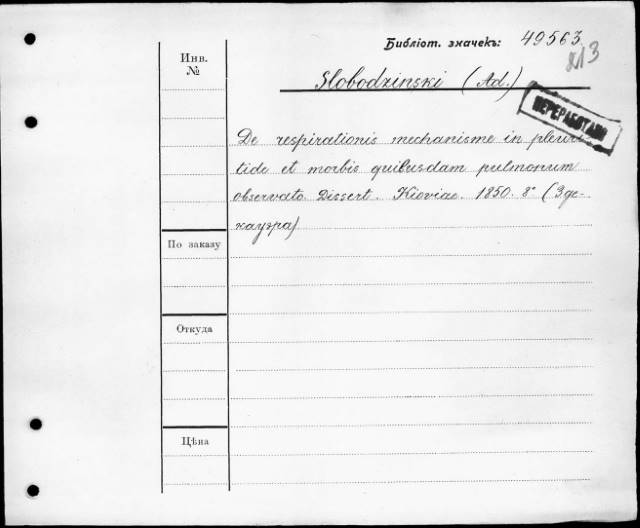 Библіот. значекъ: 49563
813
Инв.
№
Slobodzinski (Ad.)
ПЕРЕРАБОТАНО
De respirationis mechanisme in pleuri-
tide et morbis quibusdam pulmonum
observato. Dissert. Kioviae. 1850. 8° (Зде-
кауэра)
По заказу
Откуда
Цѣна